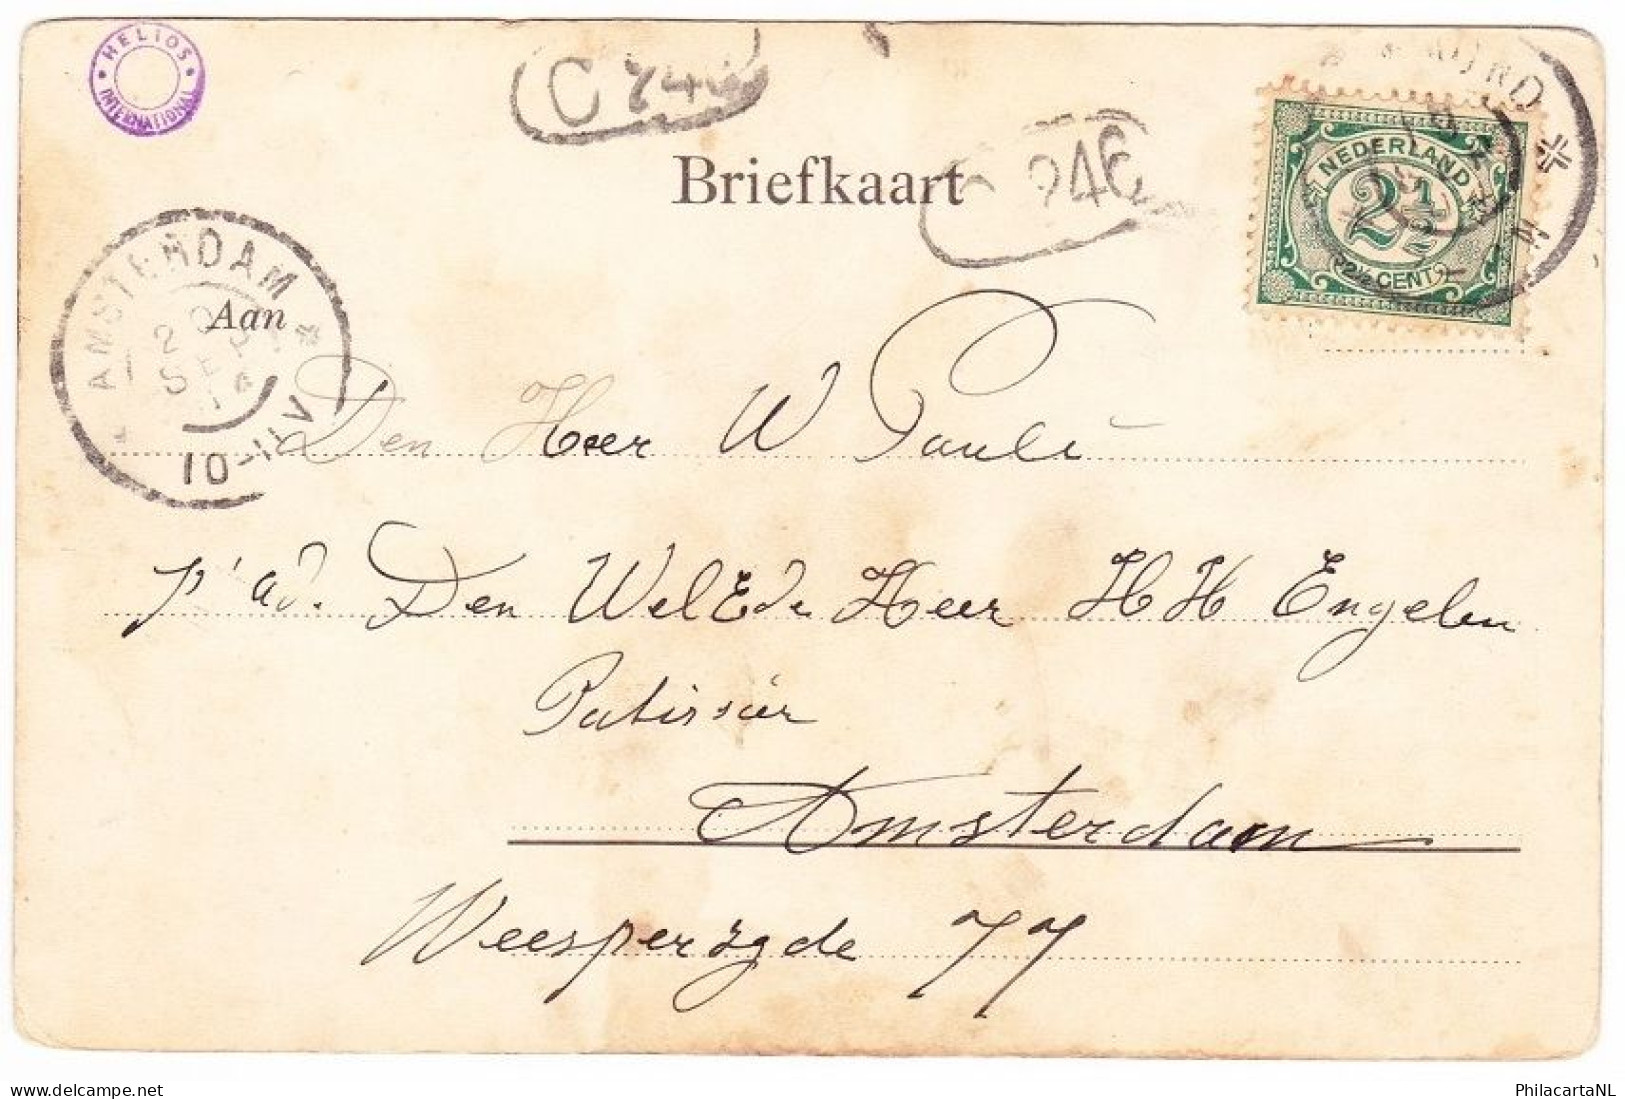 HELIOS INTERNATIONAL
C 74
Briefkaart
946
NEDERLAND
2 1/2
2½ CENT
AMSTERDAM
20
SEP
10-11V
Aan
Den Heer W Pauli
p/ad. Den WelEde Heer H H Engelen
Patissiér
Amsterdam
Weesperzyde 77
PhilacartaNL